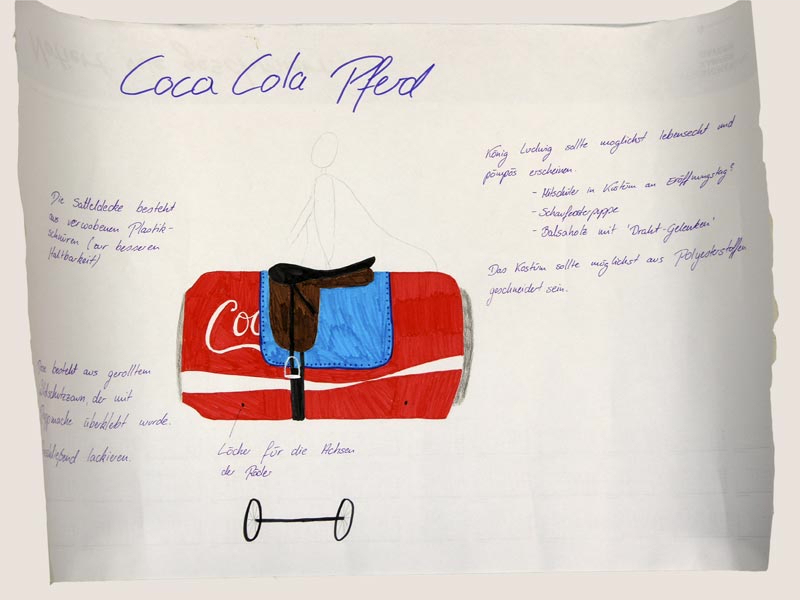 Coca Cola Pferd
König Ludwig sollte möglichst lebensecht und
pompös erscheinen.
- Mitschüler in Kostüm an Eröffnungstag?
- Schaufensterpuppe
- Balsaholz mit 'Draht-Gelenken'
Das Kostüm sollte möglichst aus Polyesterstoffen
geschneidert sein.
Die Satteldecke besteht
aus verwobenen Plastik-
schnüren (zur besseren
Haltbarkeit)
Coc
besteht aus gerolltem
der mit
überklebt wurde.
lackieren.
Löcher für die Achsen
der Räder